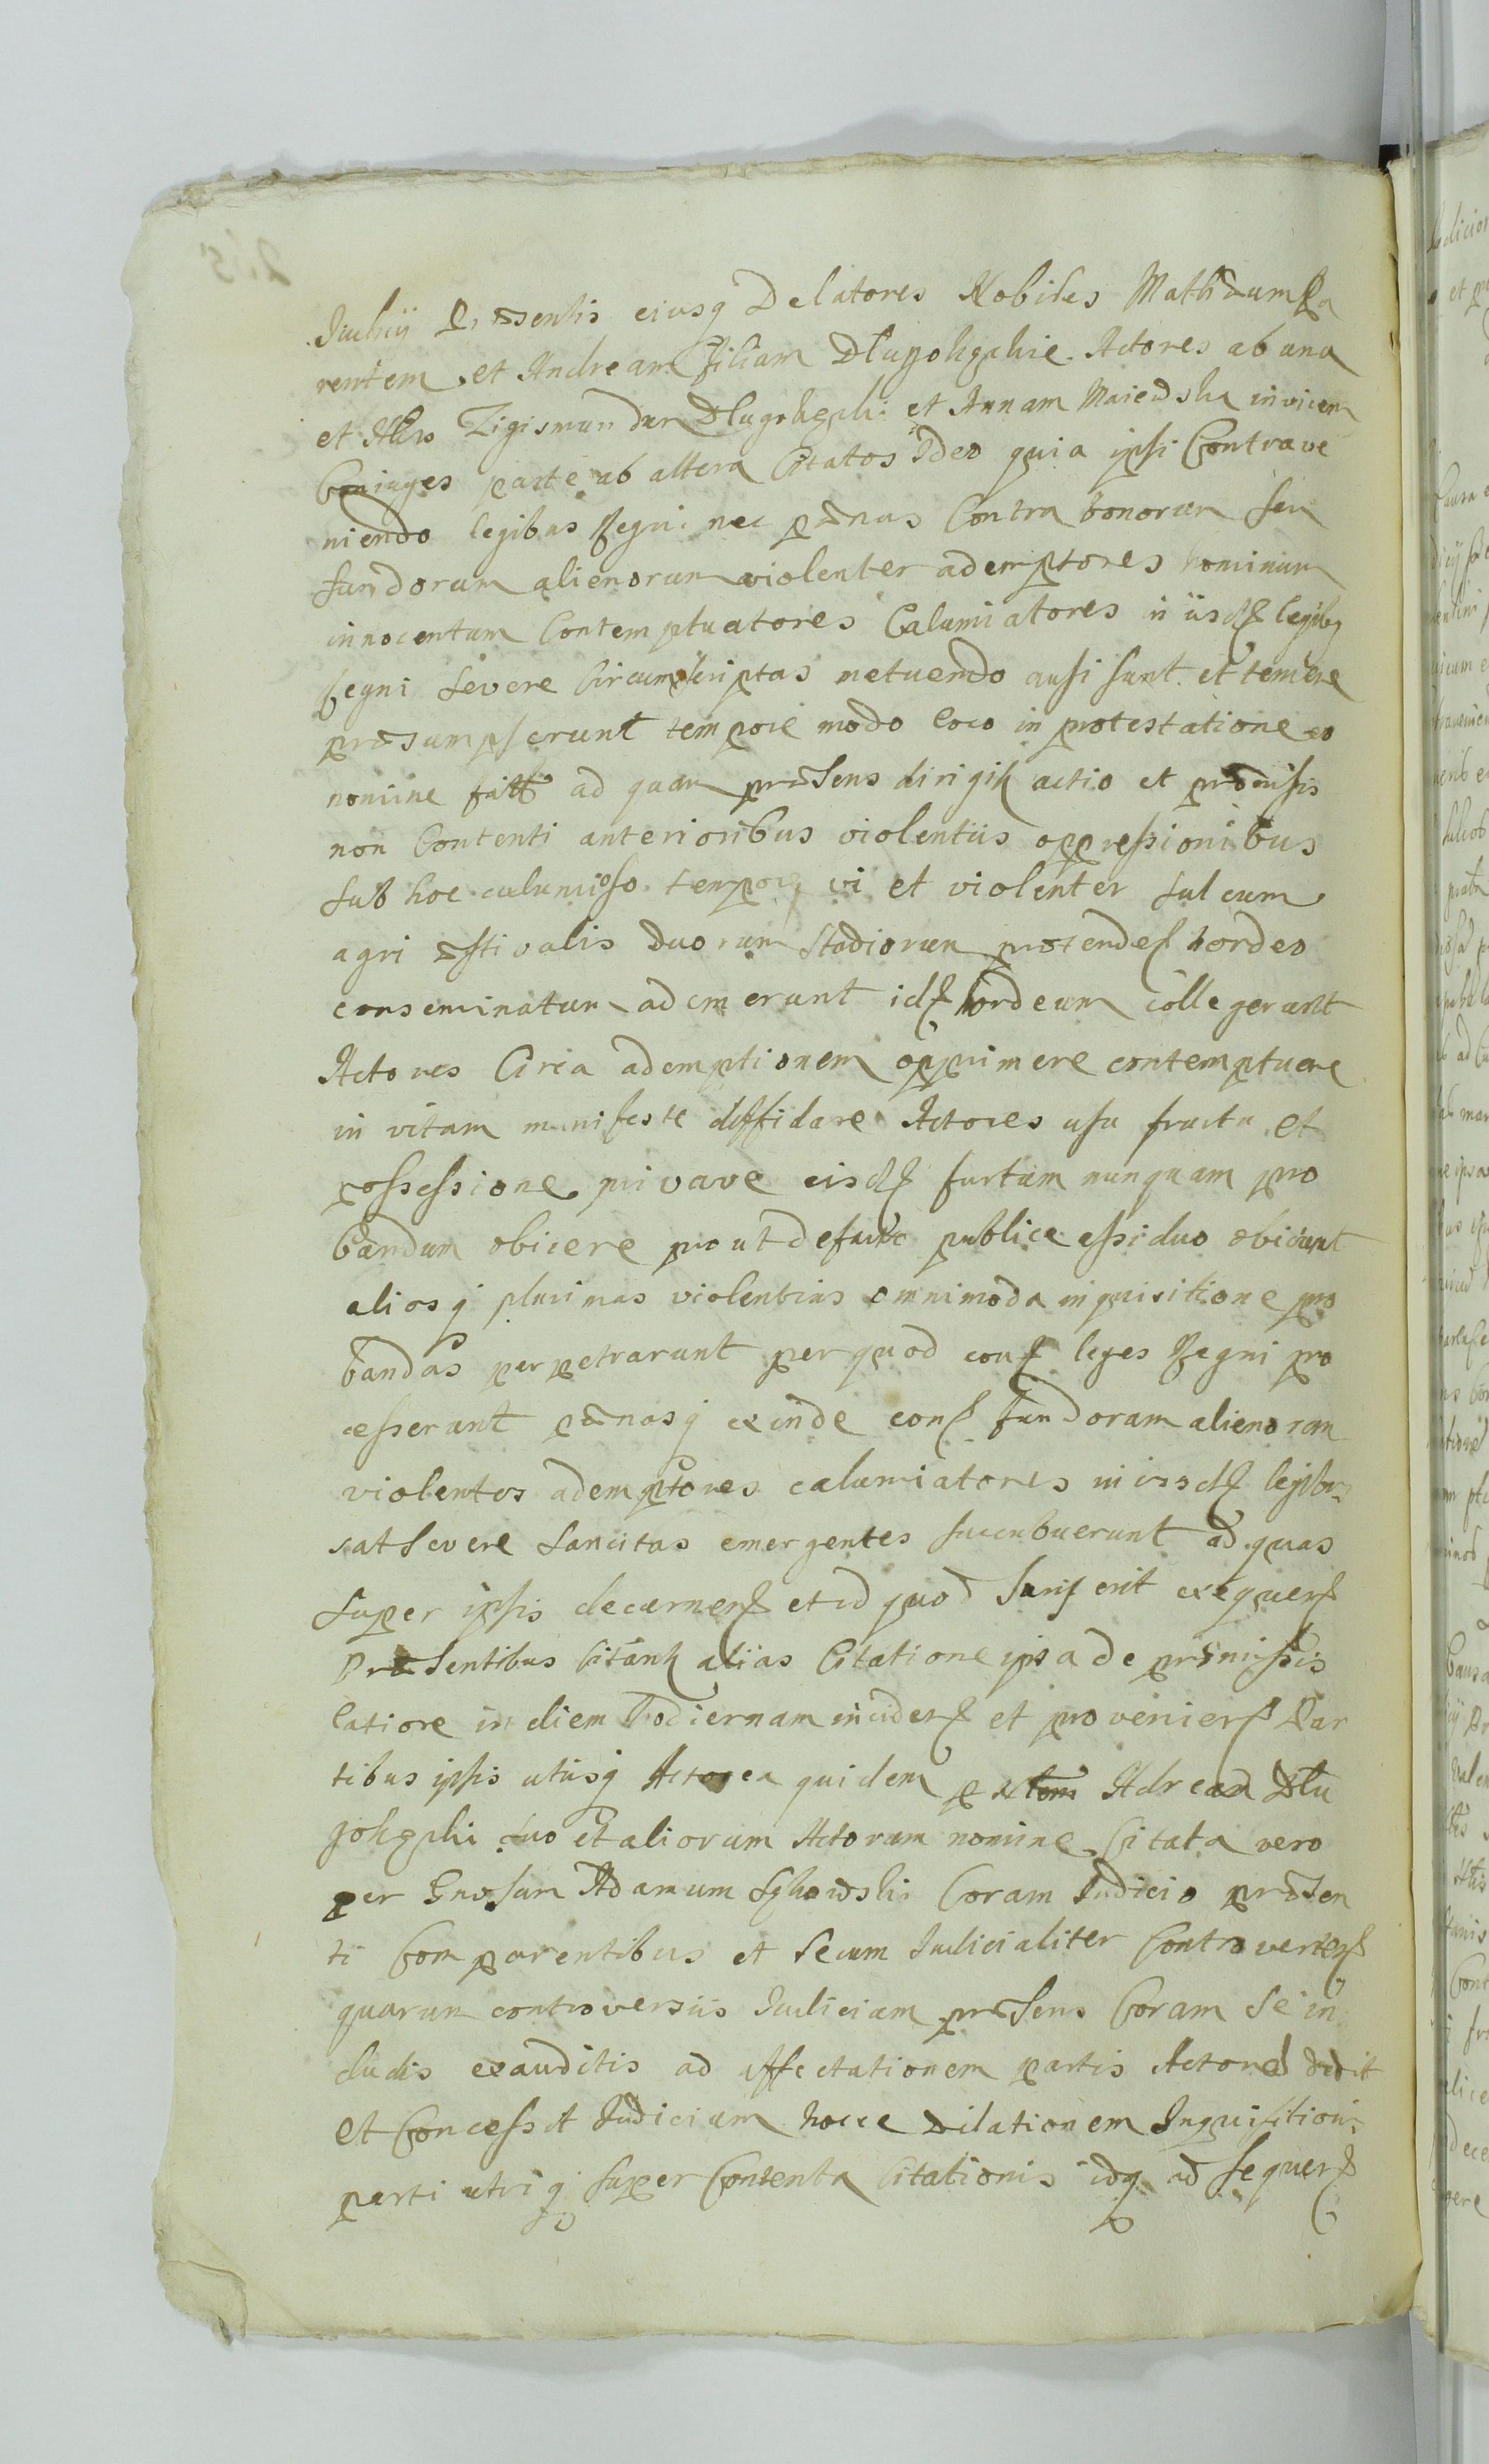 Iudicij præsentis eiusq Delatores Nobiles Mathæum Pa
rentem et Andream filium Dlugokęckie Actores ab una
et Zigismundum Dlugokęcki et Annam Maiewska invicem
Coniuges parte ab altera Citatos Ideo quia ipsi Contrave
niendo legibus Regni nec pænas Contra bonorum seu
fundorum alienorum violenter ademptores hominum
innocentum Contemptuatores Calumiatores in iisd legibq
Regni severe Circumscriptas metuendo ausi sunt et temere
præsumpserunt tempore modo loco in protestatione eo
nomine ad quam præsens dirigit actio et præmissis
non Contenti anterioribus violentiis oppressionibus
sub hoc calumioso tempore vi et violenter sulcum
agri æstivalis duorum stadiorum protenden hordeo
conseminatum ademerunt id hordeum collegerunt
Actores Circa ademptionem opprimere contemptuere
in vitam manifeste diffidare Actores usu fructu et
possessione privare eisd furtum nunquam pro
bandum obiicere prout de facto publice assiduo obiiciunt
aliosq plurimas violentias omnimoda inquisitione pro
bandas perpetrarunt per quod con leges Regni pro
cesserunt pænasq exinde con fundorum alienorum
violentos ademptores calumiatores in iisd legibu
sat severe sancitas emergentes succubuerunt ad quas
super ipsis decernen et id quod Iuris erit exequen
Præsentibus Citant alias Citatione ipsa de præmissis
latiore in diem hodiernam inciden et provenien Par
tibus ipsis utrisq Actorea quidem per Andream Dlu
gokęcki suo et aliorum Actorum nomine Citata vero
per Gnosum Adamum Coram Iudicio præsen
ti Comparentibus et secum Iudicialiter Controverten
quarum controversiis Iudicium præsens Coram se in
ductis exauditis ad affectationem partis Actoreæ dedit
et Concessit Iudicium hocce Dilationem Inquisitioni
parti utriq super Contenta Citationis idq ad sequen